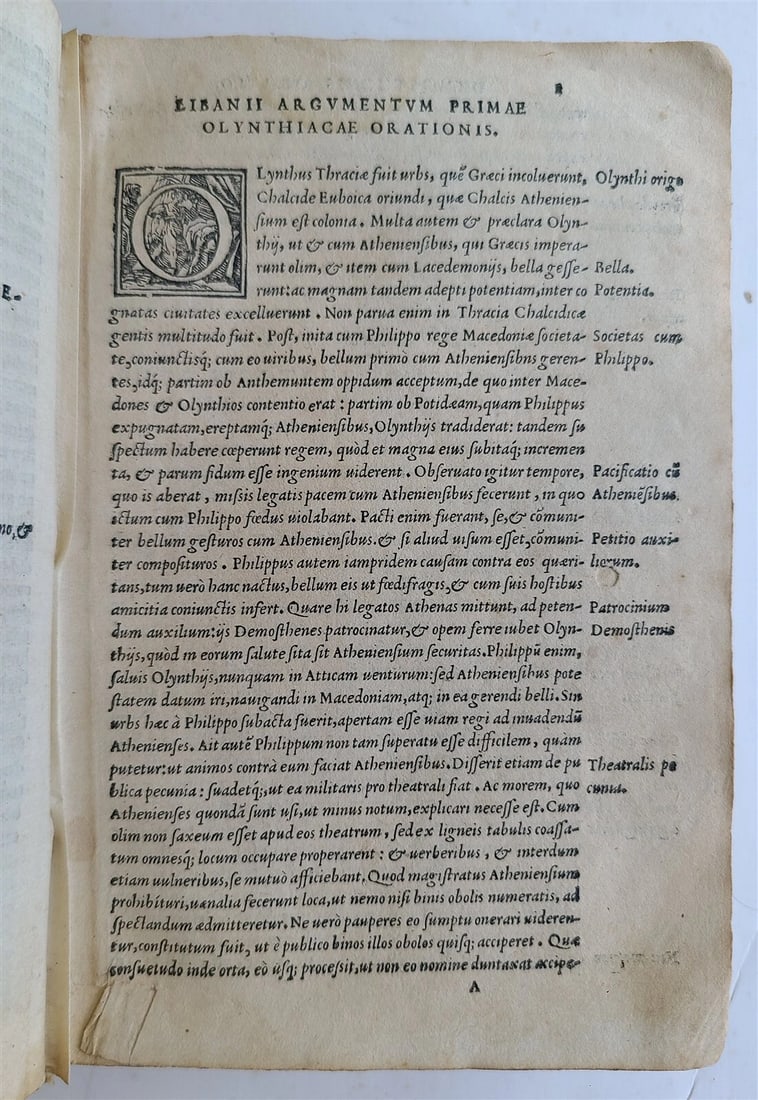 LIBANII ARGVMENTVM PRIMAE
OLYNTHIACAE ORATIONIS.
OLynthus Thraciæ fuit urbs, quẽ Græci incoluerunt, Olynthi origo
Chalcide Euboica oriundi, quæ Chalcis Athenien-
sium est colonia. Multa autem & præclara Olyn-
thij, ut & cum Atheniensibus, qui Græcis impera-
runt olim, & item cum Lacedemonijs, bella gesse- Bella.
runt: ac magnam tandem adepti potentiam, inter co Potentia.
gnatas ciuitates excelluerunt. Non parua enim in Thracia Chalcidicæ
gentis multitudo fuit. Post, inita cum Philippo rege Macedoniæ societa- Societas cum
te, coniunctisq; cum eo uiribus, bellum primò cum Atheniensibns geren- Philippo.
tes, idq; partim ob Anthemuntem oppidum acceptum, de quo inter Mace-
dones & Olynthios contentio erat: partim ob Potidæam, quam Philippus
expugnatam, ereptamq́; Atheniensibus, Olynthijs tradiderat: tandem su
spectum habere cœperunt regem, quòd et magna eius subitaq́; incremen
ta, & parum fidum esse ingenium uiderent. Obseruato igitur tempore, Pacificatio cũ
quo is aberat, missis legatis pacem cum Atheniensibus fecerunt, in quo Atheniẽsibus.
ictum cum Philippo fœdus uiolabant. Pacti enim fuerant, se, & cõmuni-
ter bellum gesturos cum Atheniensibus. & si aliud uisum esset, cõmuni- Petitio auxi-
ter composituros. Philippus autem iampridem causam contra eos quæri- liorum.
tans, tum uerò hanc nactus, bellum eis ut fœdifragis, & cum suis hostibus
amicitia coniunctis infert. Quare hi legatos Athenas mittunt, ad peten- Patrocinium
dum auxilium: ijs Demosthenes patrocinatur, & opem ferre iubet Olyn- Demosthenis
thijs, quòd in eorum salute sita sit Atheniensium securitas. Philippũ enim,
saluis Olynthijs, nunquam in Atticam uenturum: sed Atheniensibus pote
statem datum iri, nauigandi in Macedoniam, atq; in ea gerendi belli. Sin
urbs hæc à Philippo subacta fuerit, apertam esse uiam regi ad inuadendũ
Athenienses. Ait autẽ Philippum non tam superatu esse difficilem, quàm
putetur: ut animos contrà eum faciat Atheniensibus. Disserit etiam de pu Theatralis pe
blica pecunia: suadetq́;, ut ea militaris pro theatrali fiat. Ac morem, quo cunia.
Athenienses quondã sunt usi, ut minus notum, explicari necesse est. Cum
olim non saxeum esset apud eos theatrum, sed ex ligneis tabulis coassa-
tum omnesq́; locum occupare properarent: & uerberibus, & interdum
etiam uulneribus, se mutuò afficiebant. Quod magistratus Atheniensium
prohibituri, uænalia fecerunt loca, ut nemo nisi binis obolis numeratis, ad
spectandum admitteretur. Ne uerò pauperes eo sumptu onerari uideren-
tur, constitutum fuit, ut è publico binos illos obolos quisq; acciperet. Quæ
consuetudo inde orta, eò usq; processit, ut non eo nomine duntaxat accipe-
A
E-
no, &